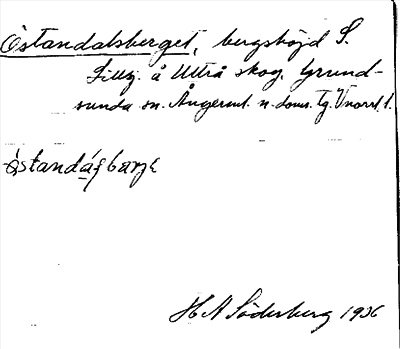 Östandalsberget, bergshöjd S.
Sillg. å Ultrå skog. Grund-
sunda sn. Ångerml. n. doms. Tg. Vnorrl. l.
östandáɽbærjə
H A Söderberg 1936